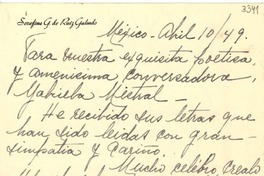 3341
Serafina G. de Ruiz Galindo
Méjico - Abril 10/49.
Para nuestra exquisita poetisa,
y amenisima conversadora,
Gabriela Mistral -
He recibido sus letras que
han sido leidas con gran
simpatía y Cariño.
Mucho celebro, Crealo